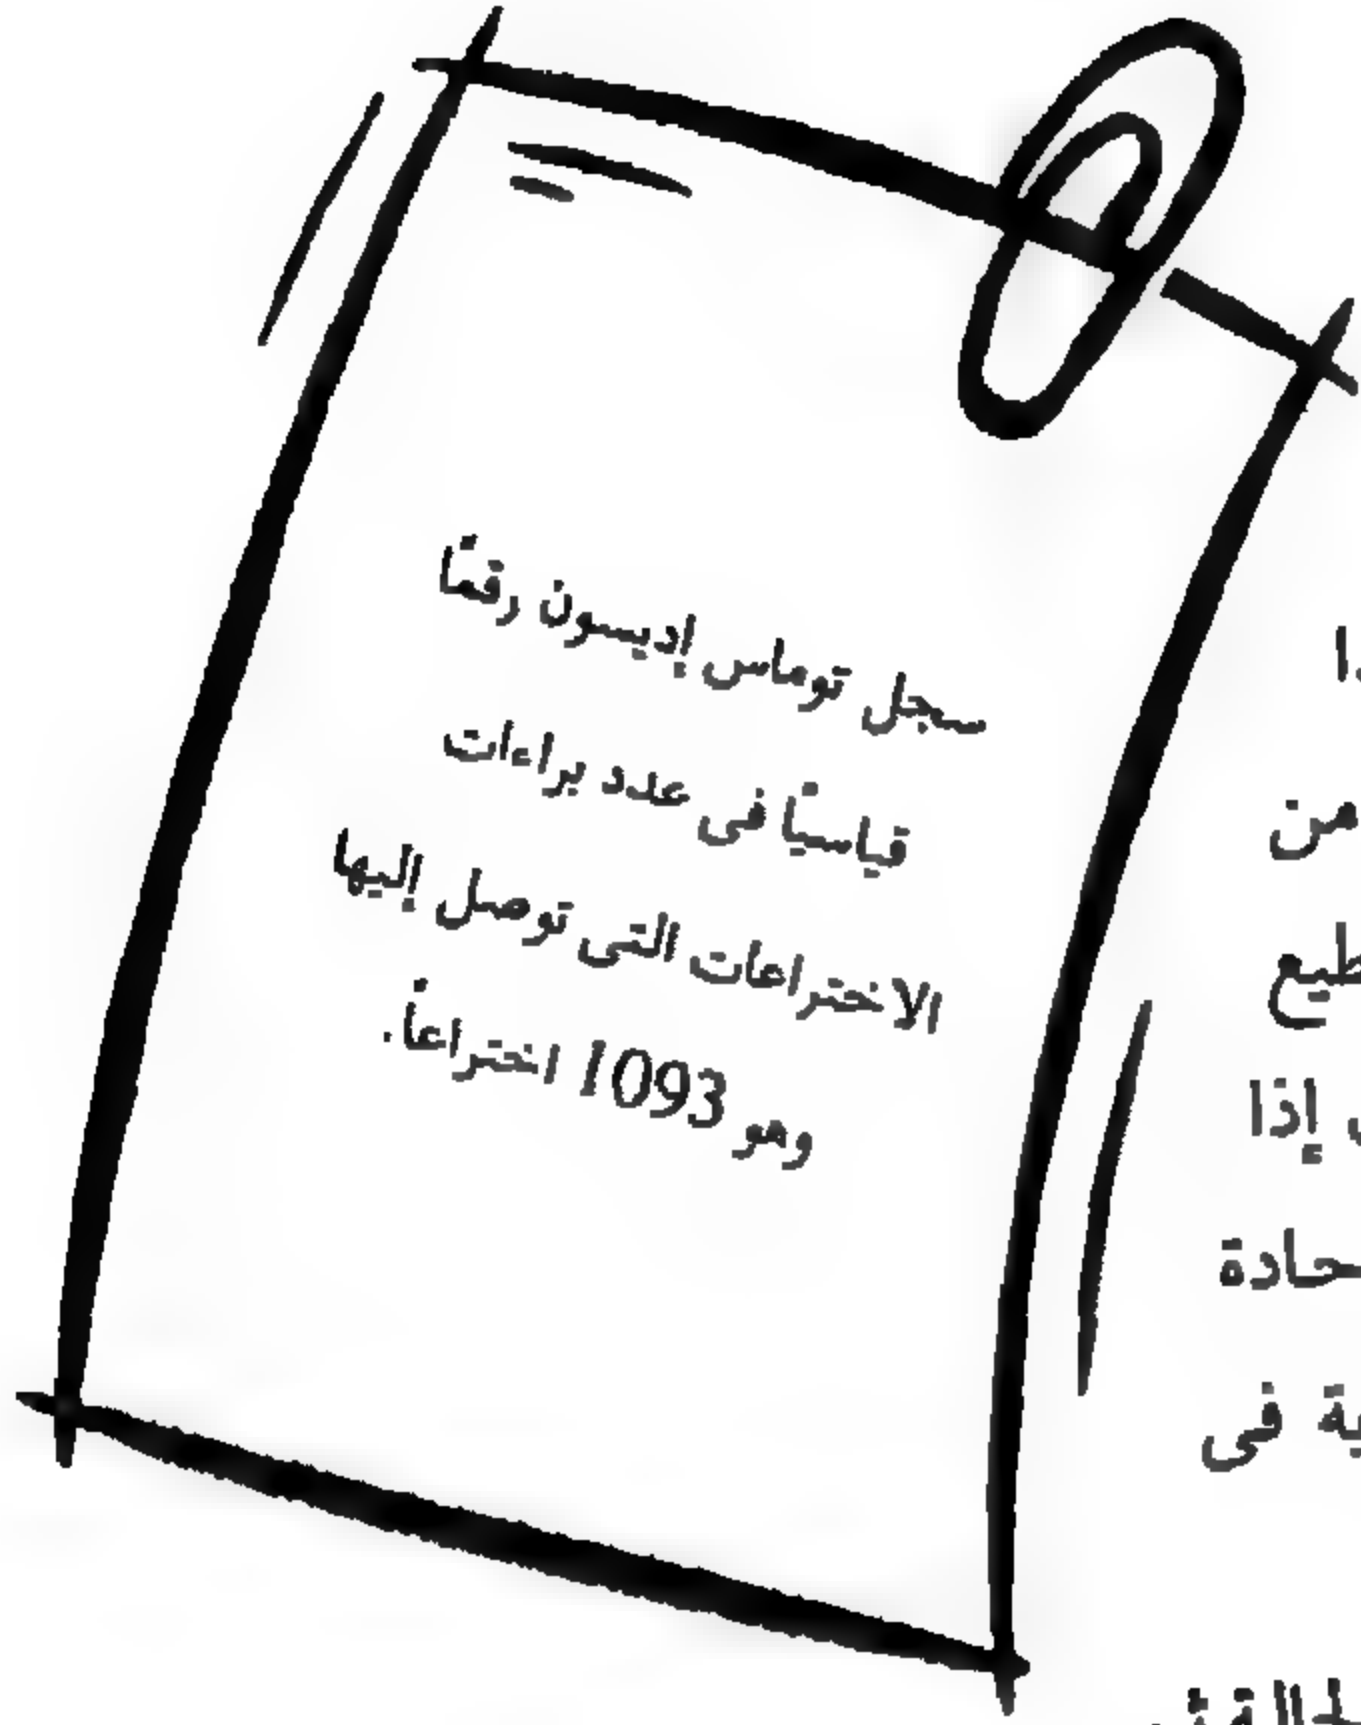 سجل توماس إديسون رقمًا
قياسيًا فى عدد براءات
الاختراعات التى توصل إليها
وهو 1093 اختراعاً.
من
إذا
فى